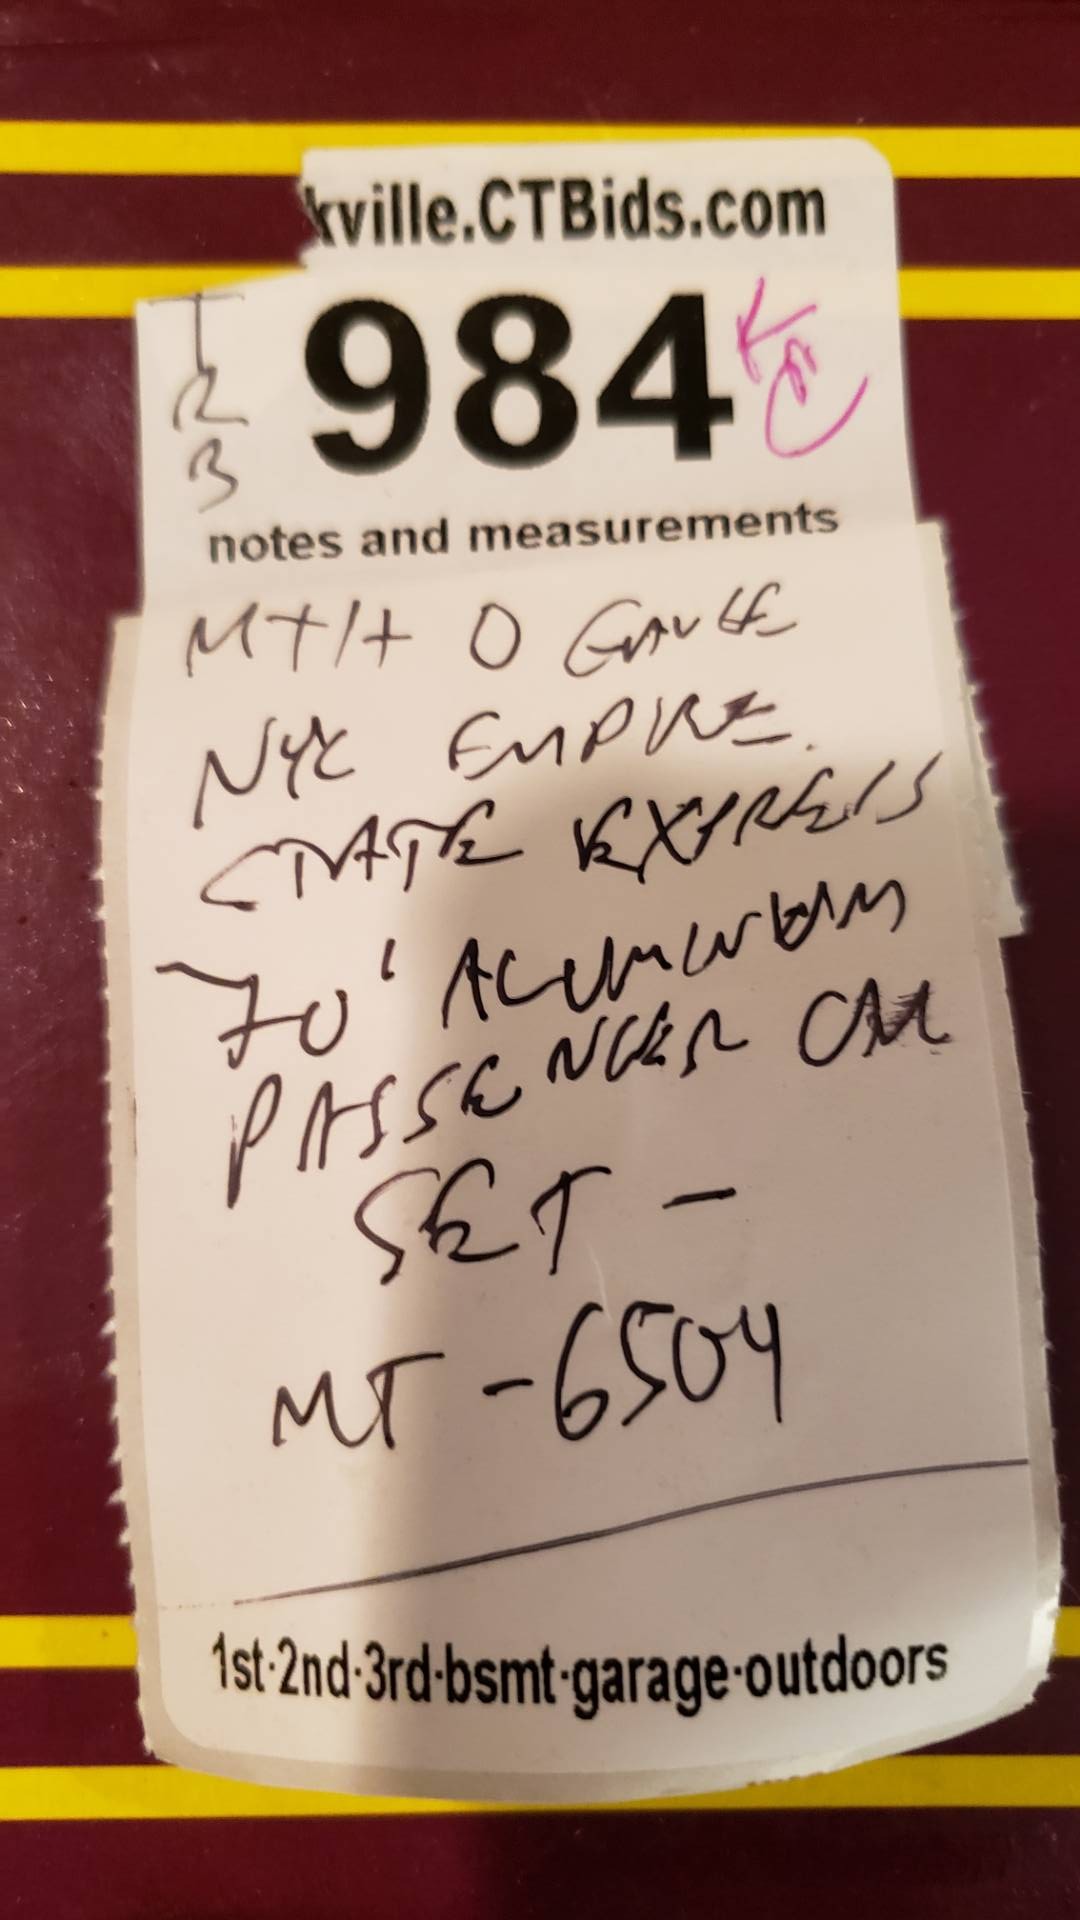 kville.CTBids.com
T
R
B
984
notes and measurements
MTH O GAUGE
NYC EMPIRE
STATE EXPRESS
70' ALUMINUM
PASSENGER CAR
SET -
MT - 6504
1st·2nd·3rd·bsmt·garage·outdoors